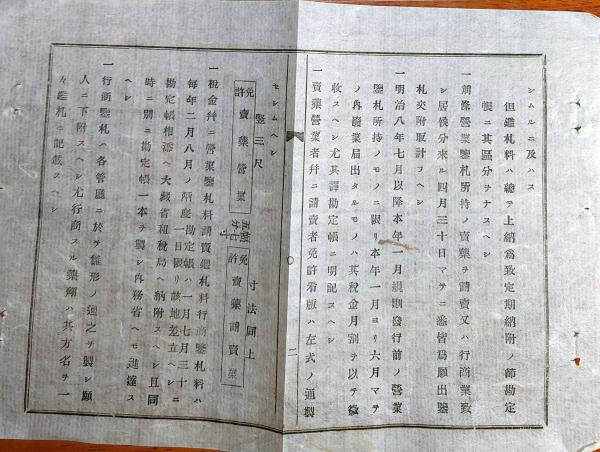 シムルニ及ハス
但鑑札料ハ總テ上納爲致定期納附ノ節勘定
帳ニ其區分ヲナスヘシ
一前條營業鑑札所持ノ賣藥ヲ請賣又ハ行商業致
シ居候分來ル四月三十日マテニ悉皆爲願出鑒
札交附取計フヘシ
一明治八年七月以降本年一月規則發行前ノ營業
鑒札所持ノモノニ限リ本年一月ヨリ六月マテ
ノ內廢業届出タルモノハ其稅金月割ヲ以テ徵
收スヘシ尤其譯勘定帳ニ明記スヘシ
一賣藥營業者幷ニ請賣者免許看版ハ左式ノ通製
二
セシムヘシ
竪三尺
免許賣藥營業
幅五寸七分
寸法同上
免許賣藥請賣業
一稅金幷ニ營業鑒札料請賣鑑札料行商鑒札料ハ
每年二月八月ノ兩度一日限リ該地差立ヘシニ
勘定帳相添ヘ大藏省租稅局ヘ納附スヘシ且同
時ニ別ニ勘定帳一本ヲ製シ內務省ヘモ進達ス
ヘシ
一行商鑒札ハ各管廳ニ於テ雛形ノ通之ヲ製シ願
人ニ下附スヘシ尤行商スル藥劑ハ其方名ヲ一
々鑑札ニ記載スヘシ